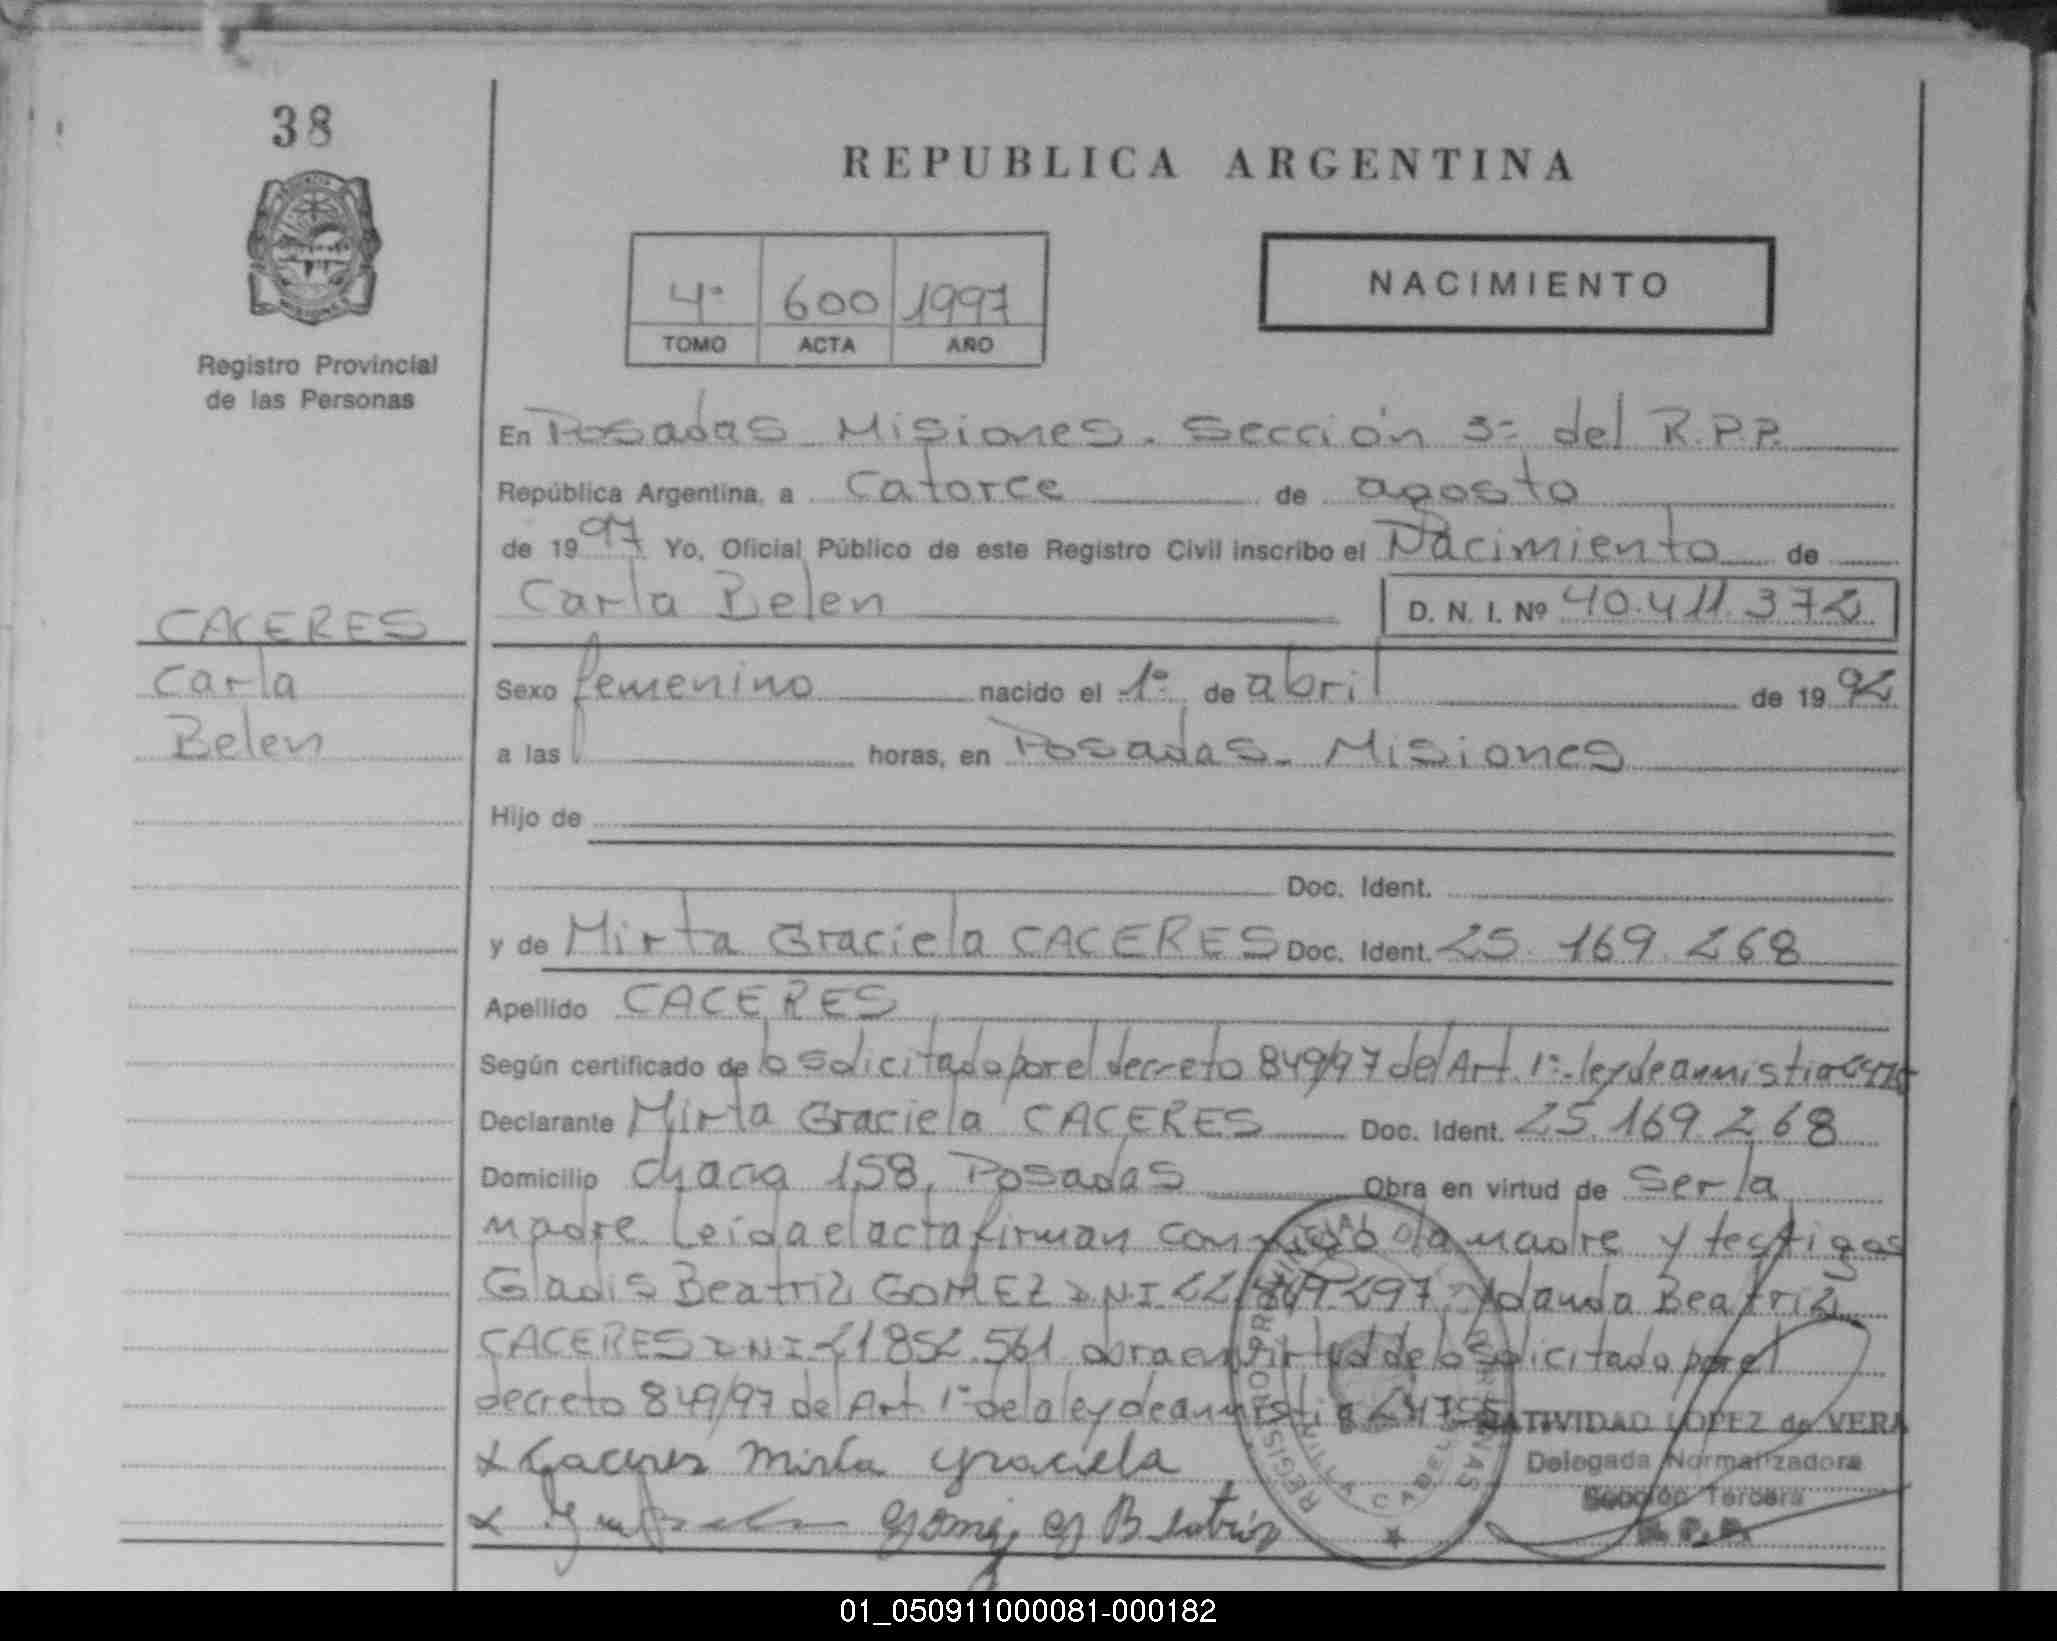 38
REPUBLICA ARGENTINA
4º 600 1997
TOMO ACTA AÑO
NACIMIENTO
Registro Provincial
de las Personas
En Posadas Misiones. Sección 3ª del R.P.P.
República Argentina, a Catorce de agosto
de 1997 Yo, Oficial Público de este Registro Civil inscribo el Nacimiento de
Carla Belen D. N. I. Nº 40.411.372
CACERES
Carla
Belen
Sexo femenino nacido el 1º de abril de 1992
a las horas, en Posadas. Misiones
Hijo de
Doc. Ident.
y de Mirta Graciela CACERES Doc. Ident. 25.169.268
Apellido CACERES
Según certificado de lo solicitado por el decreto 849/97 del Art. 1º- ley de amnistia
Declarante Mirta Graciela CACERES Doc. Ident. 25.169.268
Domicilio chacra 158, Posadas Obra en virtud de Ser la
madre Leída el acta firman conmigo la madre y testigos
Gladis Beatriz GOMEZ DNI 297 Yolanda Beatriz
CACERES DNI 21.852.561 obra en virtud de lo solicitado por el
decreto 849/97 del Art 1º de la ley de amnistia 24755
NATIVIDAD LOPEZ de VERA
Delegada Normalizadora
Sección Tercera
R.P.P.
x Caceres Mirta Graciela
x Gomez G Beatriz
REGISTRO PROVINCIAL PERSONAS
VILLA CABELLO
01_050911000081-000182